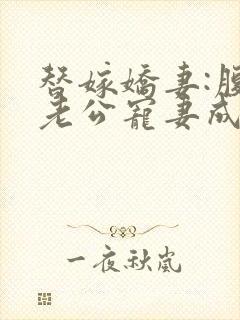 替嫁嬌妻:腹
老公寵妻成
一夜秋嵐